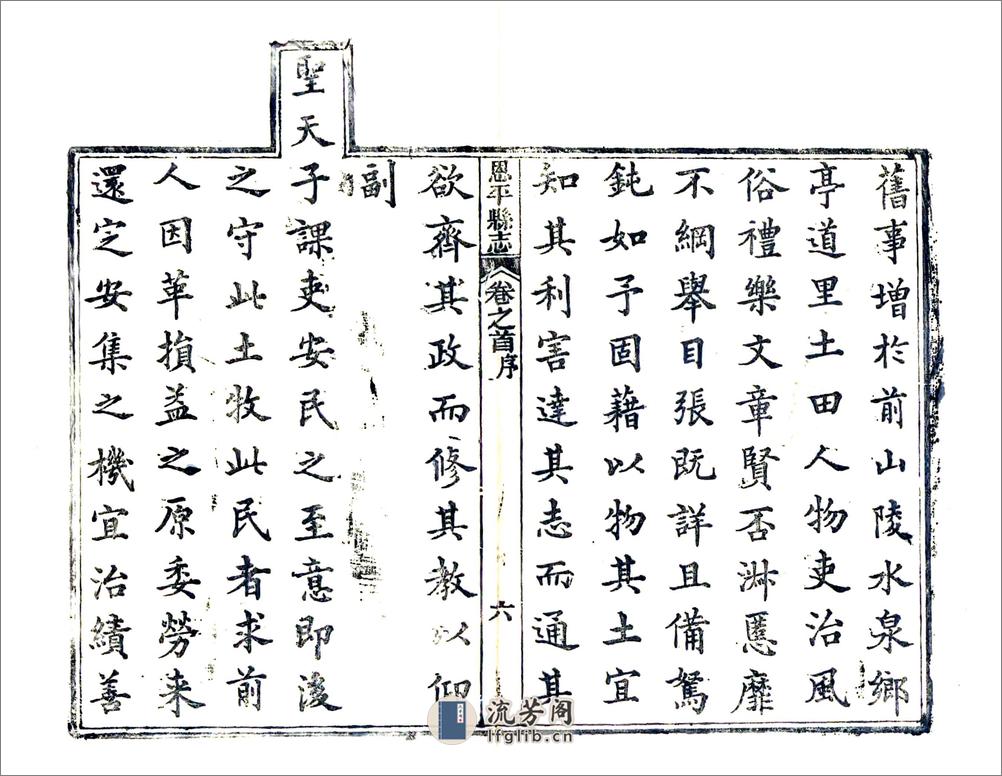 舊事增於前山陵水泉鄉
亭道里土田人物吏治風
俗禮樂文章賢否淑慝靡
不綱舉目張既詳且備駑
鈍如予固藉以物其土宜
知其利害達其志而通其
欲齊其政而修其教以仰
恩平縣志
卷之首序
六
副
聖天
子課吏安民之至意即後
之守此土牧此民者求前
人因革損益之原委勞来
還定安集之機宜治績善
流芳阁
lfglib.cn